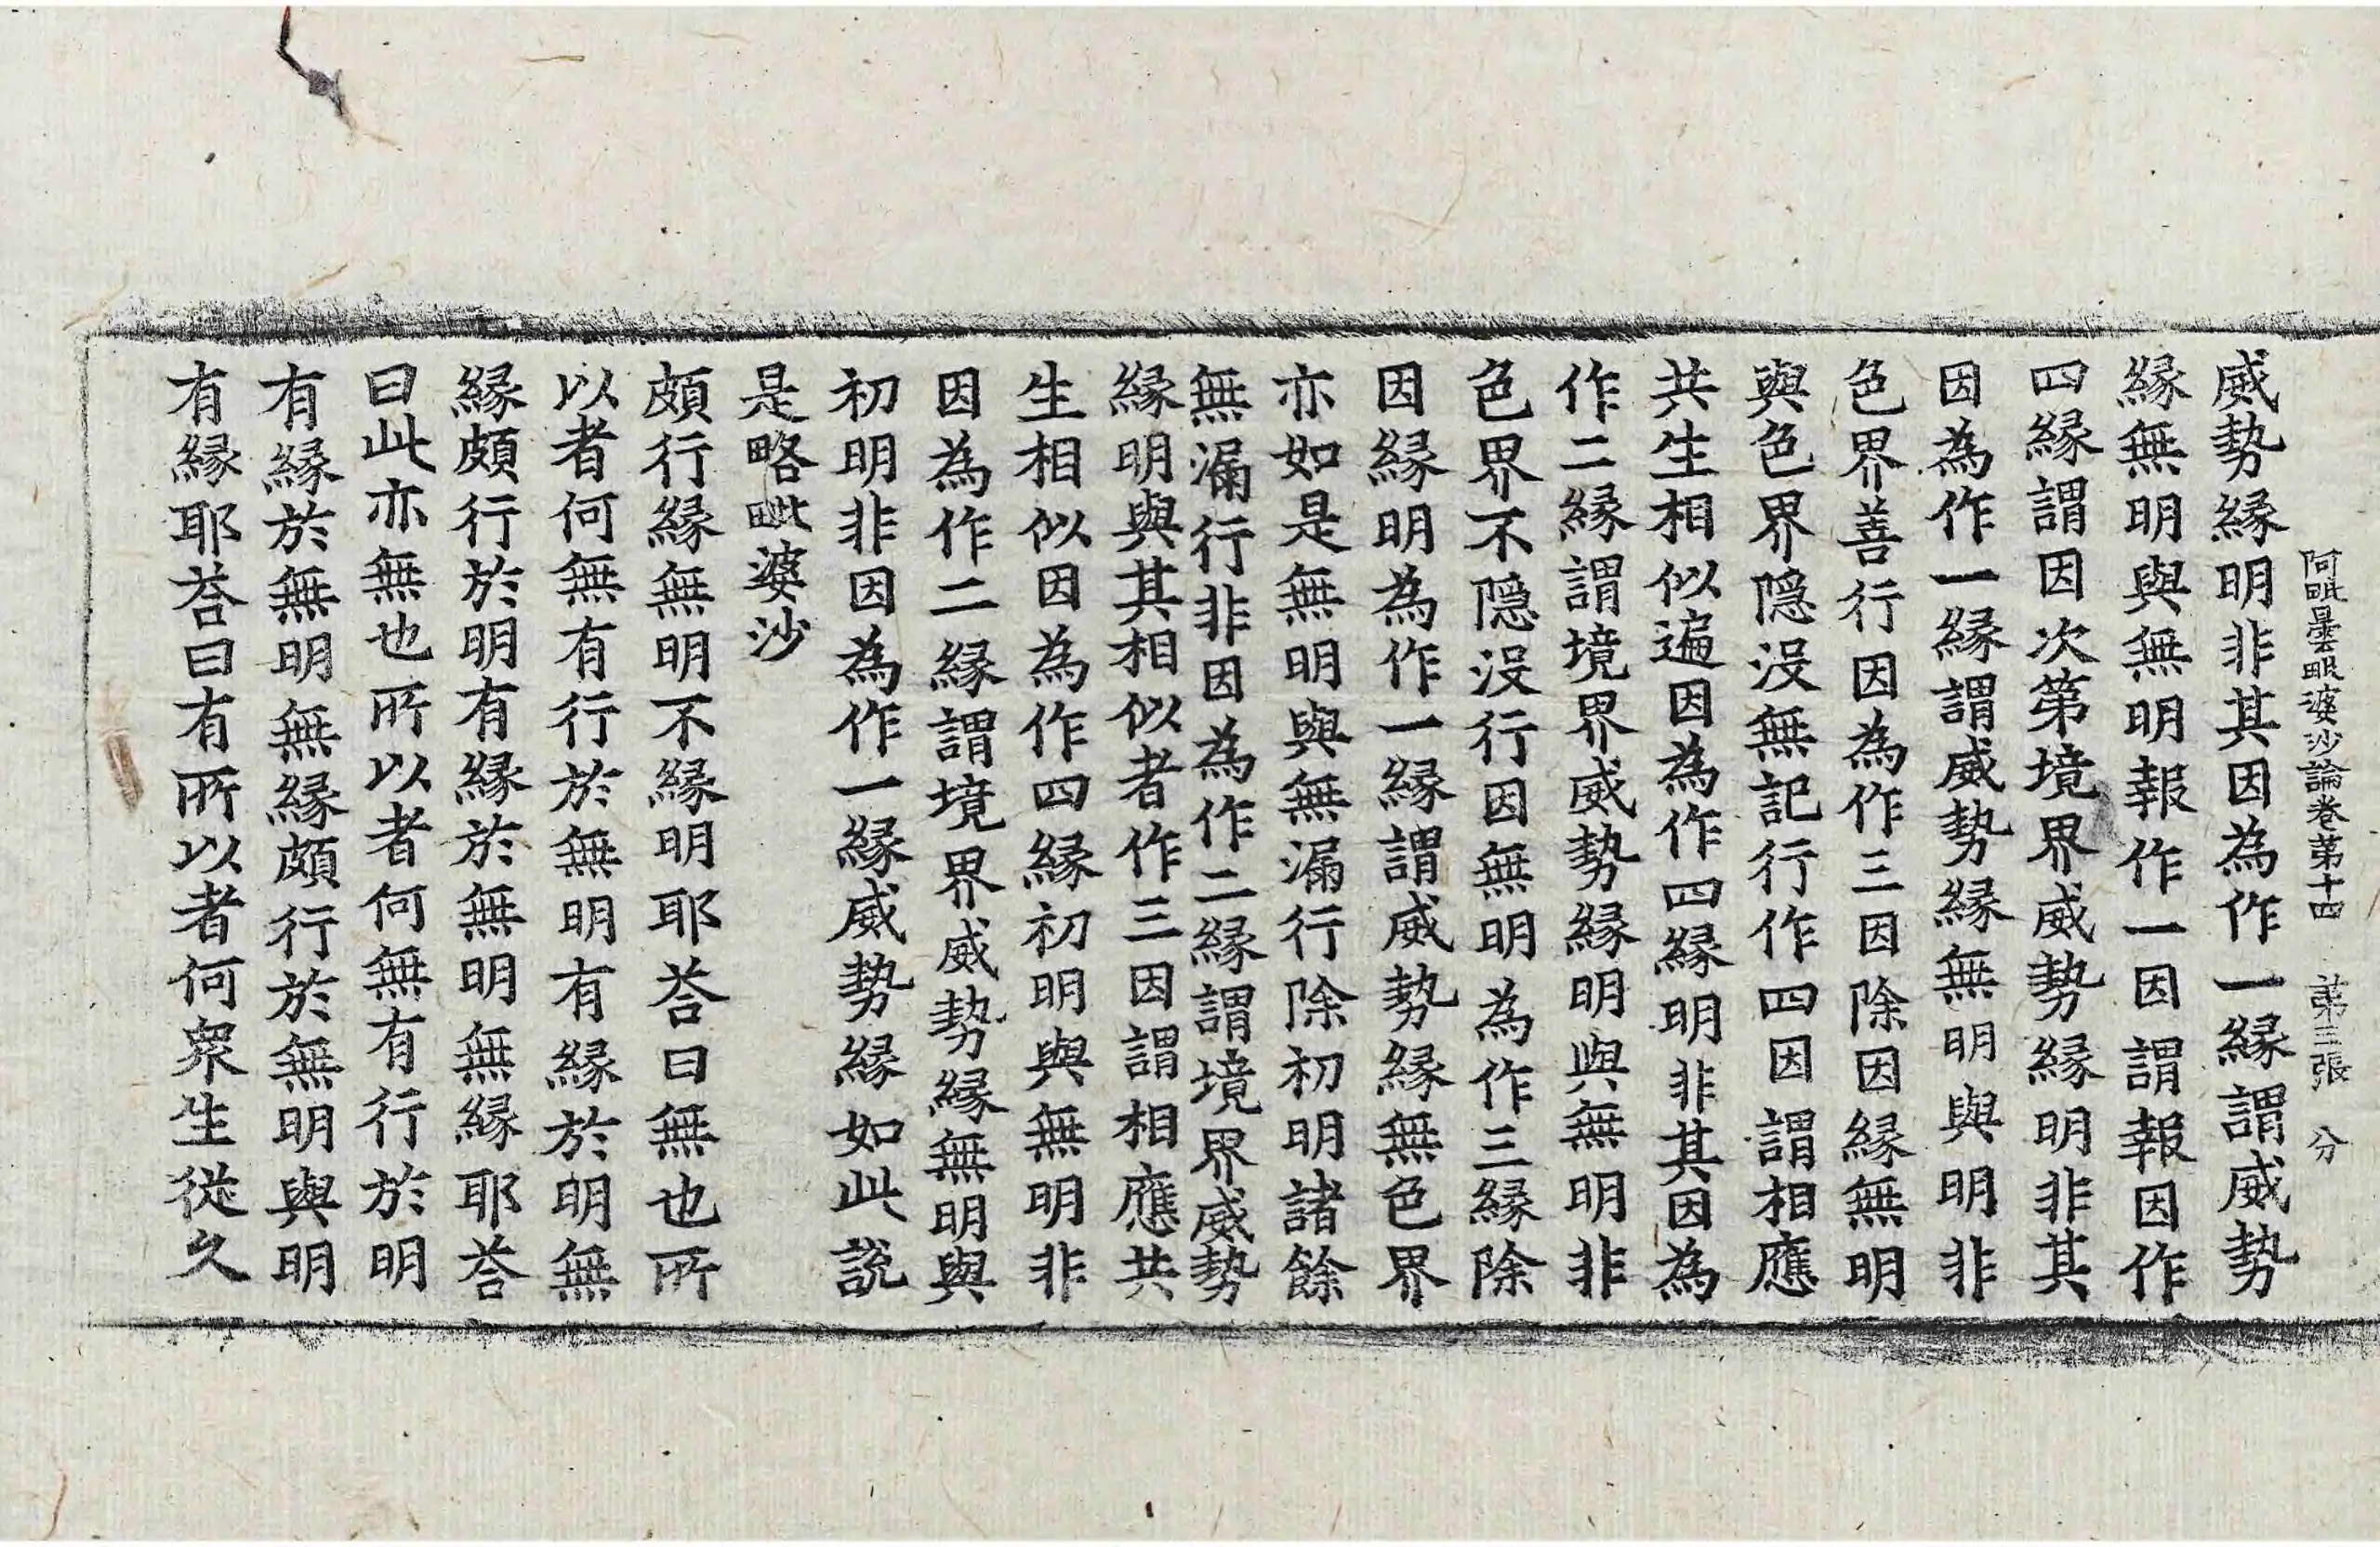 阿毗曇毗婆沙論卷第十四 第三張 分
威勢緣明非其因為作一緣謂威勢
緣無明與無明報作一因謂報因作
四緣謂因次第境界威勢緣明非其
因為作一緣謂威勢緣無明與明非
色界善行因為作三因除因緣無明
與色界隱沒無記行作四因謂相應
共生相似遍因為作四緣明非其因為
作二緣謂境界威勢緣明與無明非
色界不隱沒行因無明為作三緣除
因緣明為作一緣謂威勢緣無色界
亦如是無明與無漏行除初明諸餘
無漏行非因為作二緣謂境界威勢
緣明與其相似者作三因謂相應共
生相似因為作四緣初明與無明非
因為作二緣謂境界威勢緣無明與
初明非因為作一緣威勢緣如此說
是略毗婆沙
頗行緣無明不緣明耶荅曰無也所
以者何無有行於無明有緣於明無
緣頗行於明有緣於無明無緣耶荅
曰此亦無也所以者何無有行於明
有緣於無明無緣頗行於無明與明
有緣耶荅曰有所以者何眾生從久